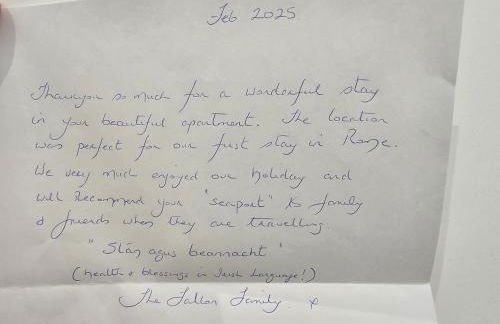 Feb 2025
Thankyou so much for a wonderful stay
in your beautiful apartment. The location
was perfect for our first stay in Rome.
We very much enjoyed our holiday and
will Recommend your to family
& friends when they are travelling.
"Slán agus beannacht"
(health & blessings in Irish Language!)
The Fallon Family. x